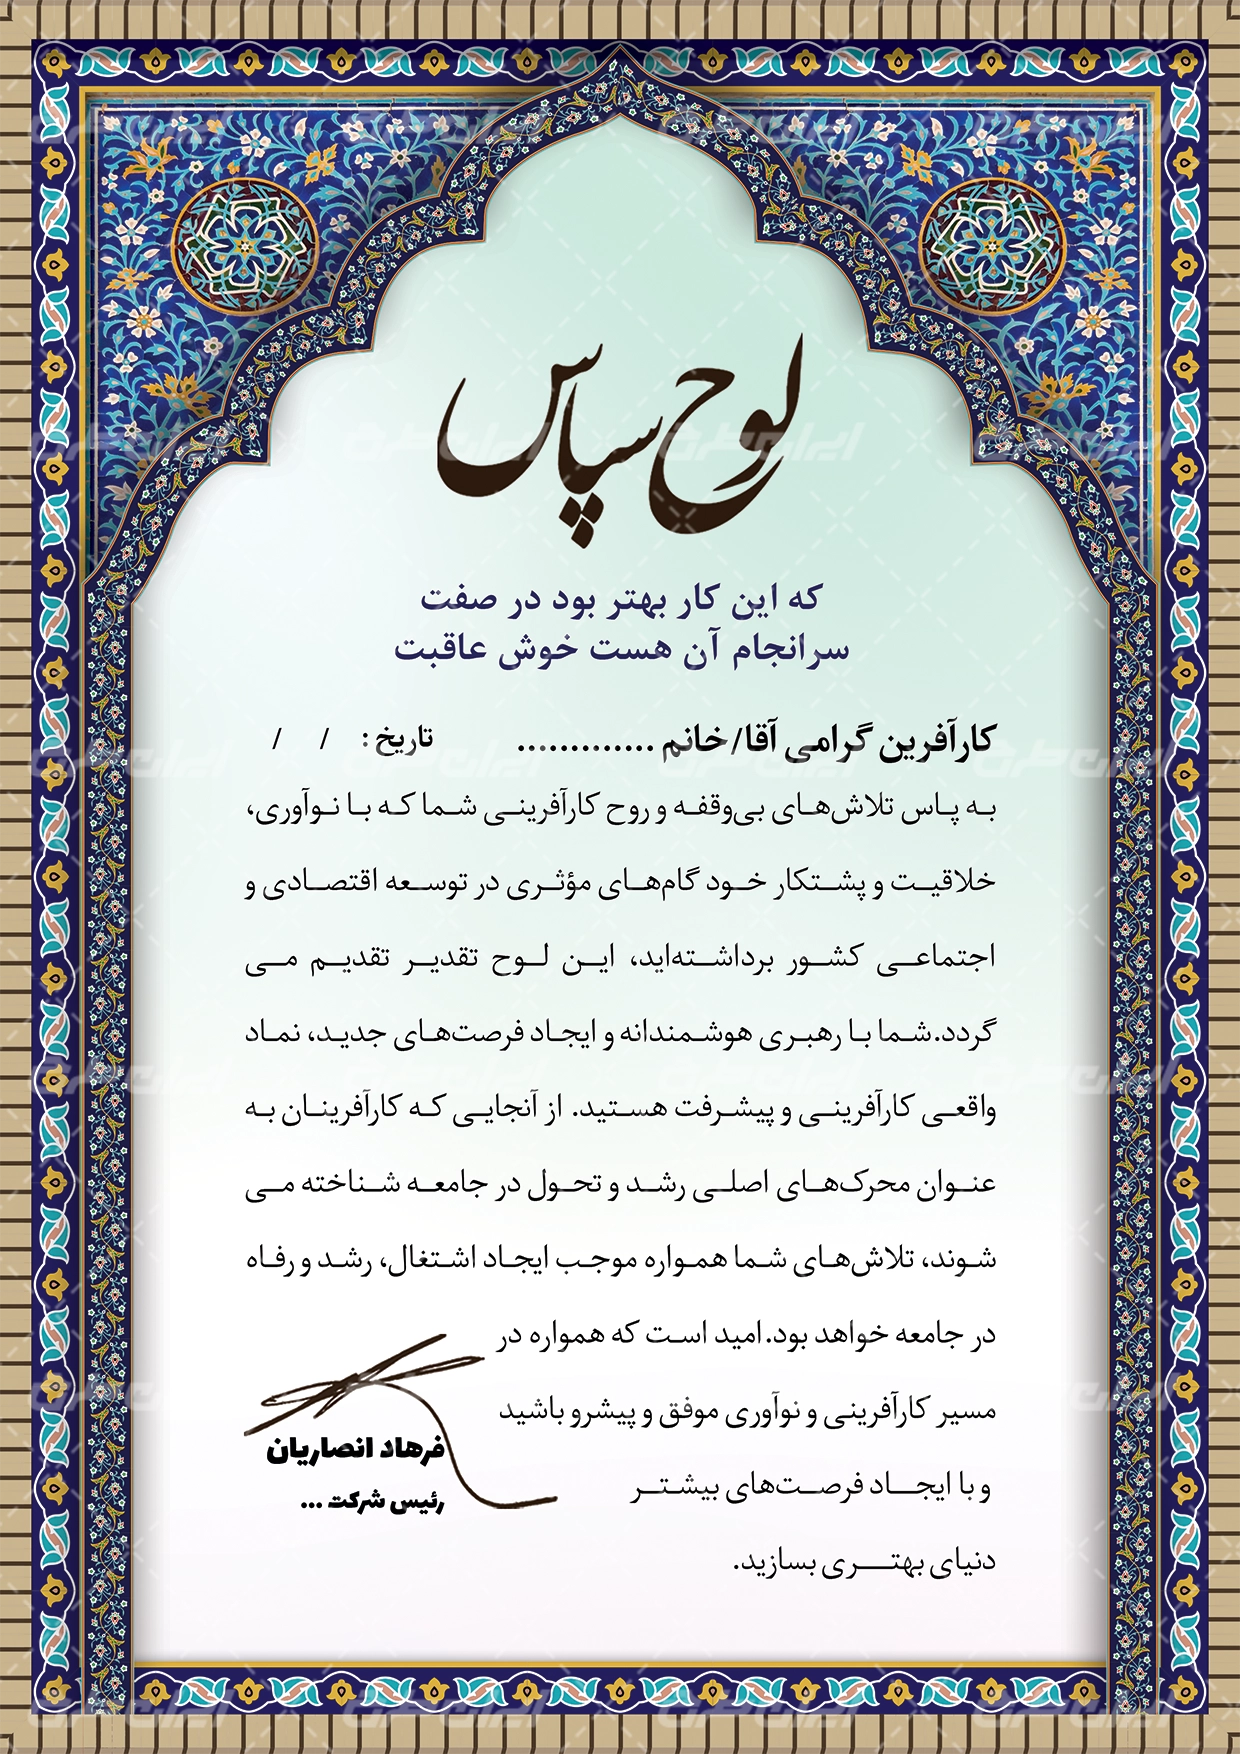 لوح سپاس
که این کار بهتر بود در صفت
سرانجام آن هست خوش عاقبت
کارآفرین گرامی آقا/خانم ............. تاریخ : / /
به پاس تلاش‌های بی‌وقفه و روح کارآفرینی شما که با نوآوری،
خلاقیت و پشتکار خود گام‌های مؤثری در توسعه اقتصادی و
اجتماعی کشور برداشته‌اید، این لوح تقدیر تقدیم می
گردد.شما با رهبری هوشمندانه و ایجاد فرصت‌های جدید، نماد
واقعی کارآفرینی و پیشرفت هستید. از آنجایی که کارآفرینان به
عنوان محرک‌های اصلی رشد و تحول در جامعه شناخته می
شوند، تلاش‌های شما همواره موجب ایجاد اشتغال، رشد و رفاه
در جامعه خواهد بود.امید است که همواره در
مسیر کارآفرینی و نوآوری موفق و پیشرو باشید
و با ایجاد فرصت‌های بیشتر
دنیای بهتری بسازید.
فرهاد انصاریان
رئیس شرکت ...